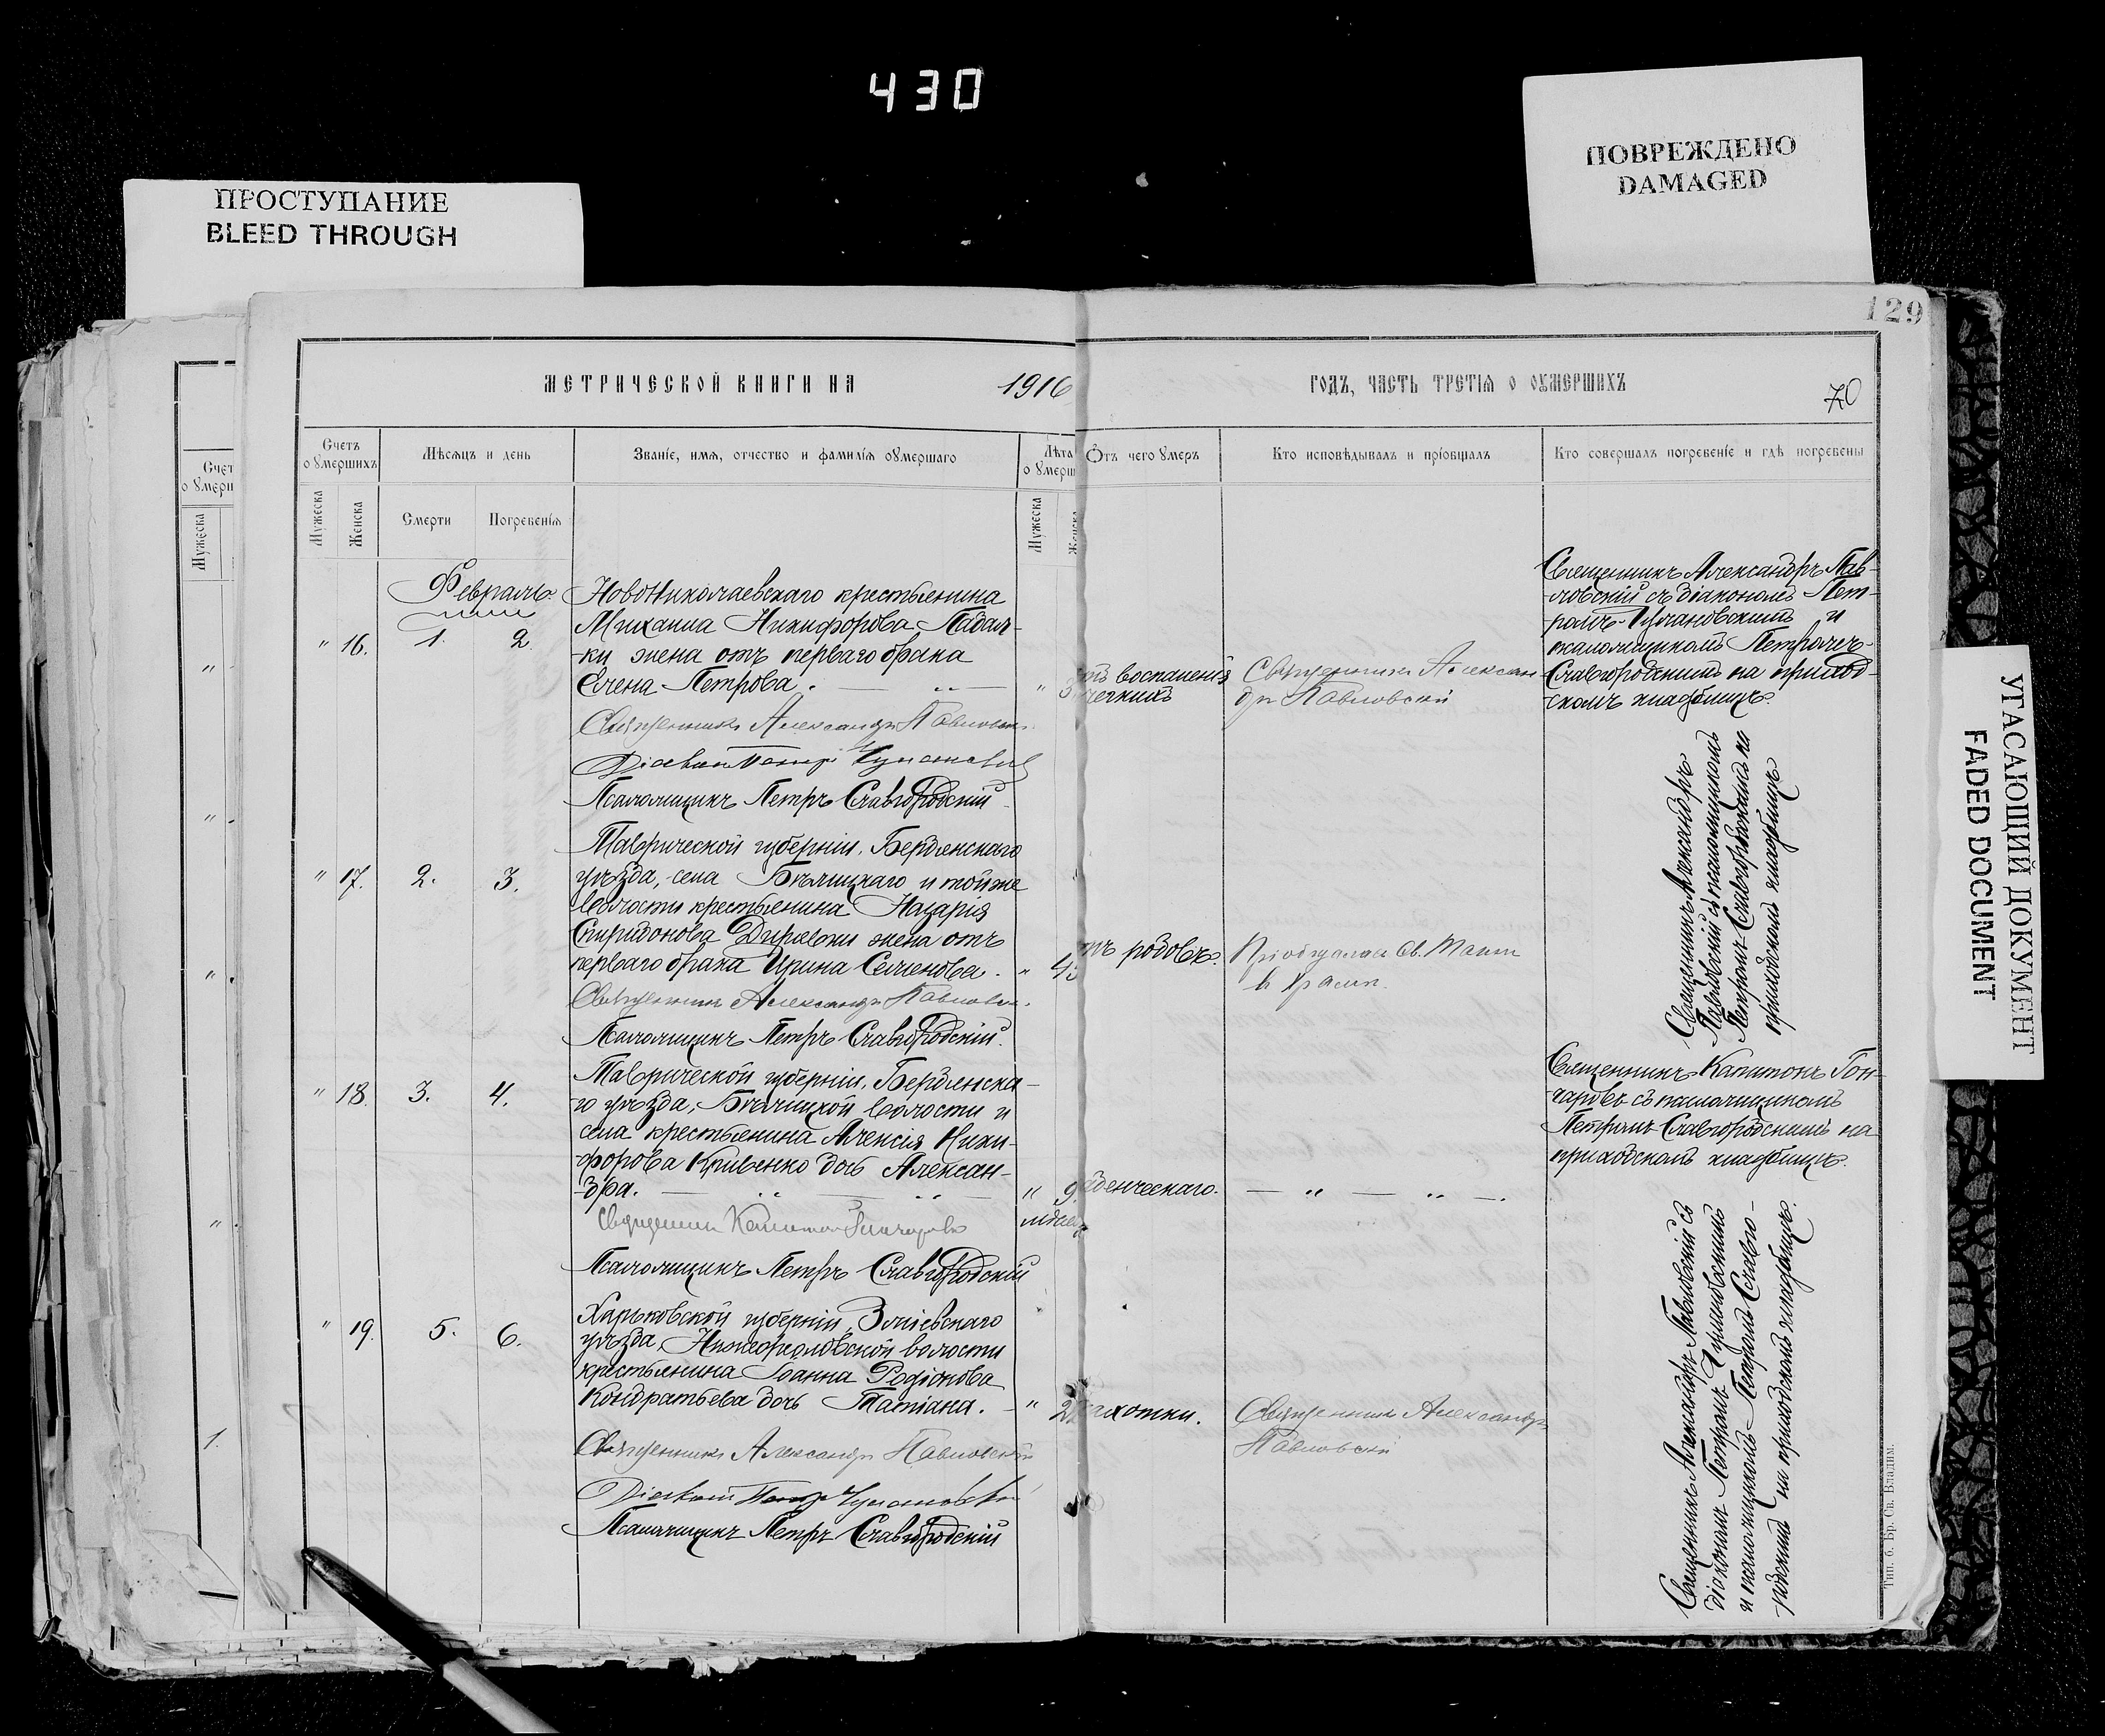 430
ПРОСТУПАНИЕ
BLEED THROUGH
ПОВРЕЖДЕНО
DAMAGED
УГАСАЮЩИЙ ДОКУМЕНТ
FADED DOCUMENT
129
МЕТРИЧЕСКОЙ КНИГИ НА 1916
ГОДЪ, ЧАСТЬ ТРЕТІЯ О ОУМЕРШИХЪ
70
Счетъ оумершихъ
Мѣсяцъ и день
Званіе, имя, отчество и фамилія оумершаго
Лѣта оумерш
Отъ чего умеръ
Кто исповѣдывалъ и пріобщалъ
Кто совершалъ погребеніе и гдѣ погребены
Мужеска
Женска
Смерти
Погребенія
Мужеска
Женска
Февраль
" 16. 1. 2.
НовоНиколаевскаго крестьянина
Михаила Никифорова Падал-
ки жена отъ перваго брака
Елена Петрова. "
воспаленія
легкихъ
Священникъ Алексан
дръ Павловскій
Священникъ Александръ Пав-
ловскій съ діакономъ Пет-
ромъ
и
псаломщикомъ Петромъ
Славгородскимъ на приход-
скомъ кладбищѣ.
Священникъ Александръ Павловскій
Діаконъ Петръ
Псаломщикъ Петръ Славгородскій
" 17. 2. 3.
Таврической губерніи, Бердянскаго
уѣзда, села Бѣлицкаго и той же
волости крестьянина Назарія
Спиридонова жена отъ
перваго брака Ирина Семенова. "
родовъ.
Пріобщалась Св. Таинъ
в храмѣ.
Священникъ Александръ
Павловскій съ псаломщикомъ
Петромъ Славгородскимъ на
приходскомъ кладбищѣ
Священникъ Александръ Павловскій
Псаломщикъ Петръ Славгородскій.
" 18. 3. 4.
Таврической губерніи, Бердянска-
го уѣзда, Бѣлицкой волости и
села крестьянина Алексія Ники-
форова Кривенко дочь Алексан-
дра. " 9
аденческаго.
Священникъ Капитонъ Гон-
чаровъ съ псаломщикомъ
Петромъ Славгородскимъ на
приходскомъ кладбищѣ.
Священникъ Капитонъ Гончаровъ
Псаломщикъ Петръ Славгородскій
" 19. 5. 6.
Харьковской губерніи, Зміевскаго
уѣзда, волости
крестьянина Іоанна Родіонова
Кондратьева дочь Татіана. "
чахотки.
Священникъ Александръ
Павловскій
Священникъ Александръ Павловскій съ
діакономъ Петромъ
и псаломщикомъ Петромъ Славго-
родскимъ на приходскомъ кладбищѣ.
Священникъ Александръ Павловскій
Діаконъ Петръ
Псаломщикъ Петръ Славгородскій
Тип. б. Бр. Св. Владим.